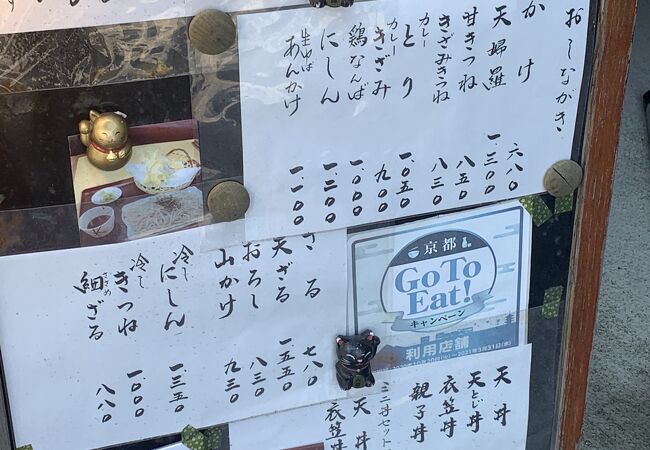 おしながき
かけ 六八〇
天婦羅 一.三〇〇
甘きつね 八五〇
きざみきつね 八三〇
カレーとり 一.〇五〇
カレーきざみ 九〇〇
鶏なんば 一.〇〇〇
にしん 一.二〇〇
生ゆばあんかけ 一.一〇〇
ざる 七八〇
天ざる 一.五五〇
おろし 八三〇
山かけ 九三〇
冷しにしん 一.三五〇
冷しきつね 一.〇〇〇
細ざる 八八〇
京都
Go To
Eat!
キャンペーン
利用店舗
天丼
天とじ丼
衣笠丼
親子丼
ミニ丼セット
天丼
衣笠丼